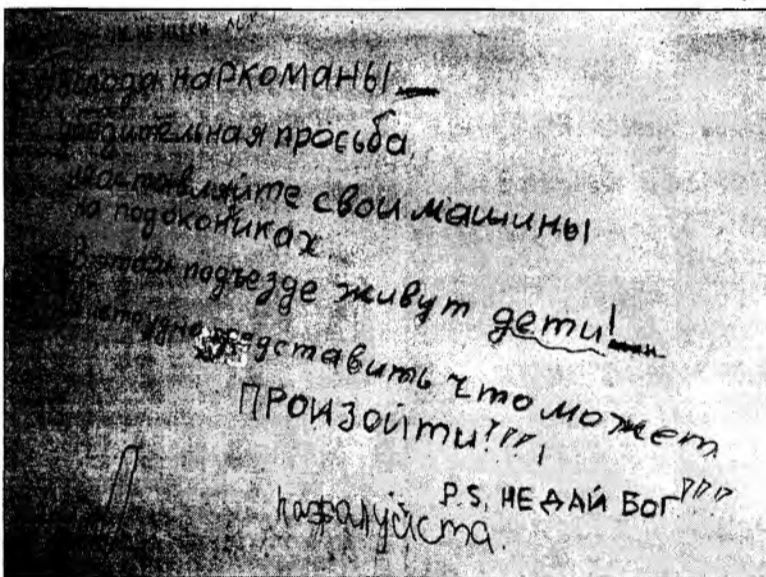 наркоманы
убедительная просьба,
не оставляйте свои машины
на подокониках
В этом подъезде живут дети!
представить что может
ПРОИЗОЙТИ!!!!
P.S. НЕ ДАЙ БОГ!!!
пожалуйста.